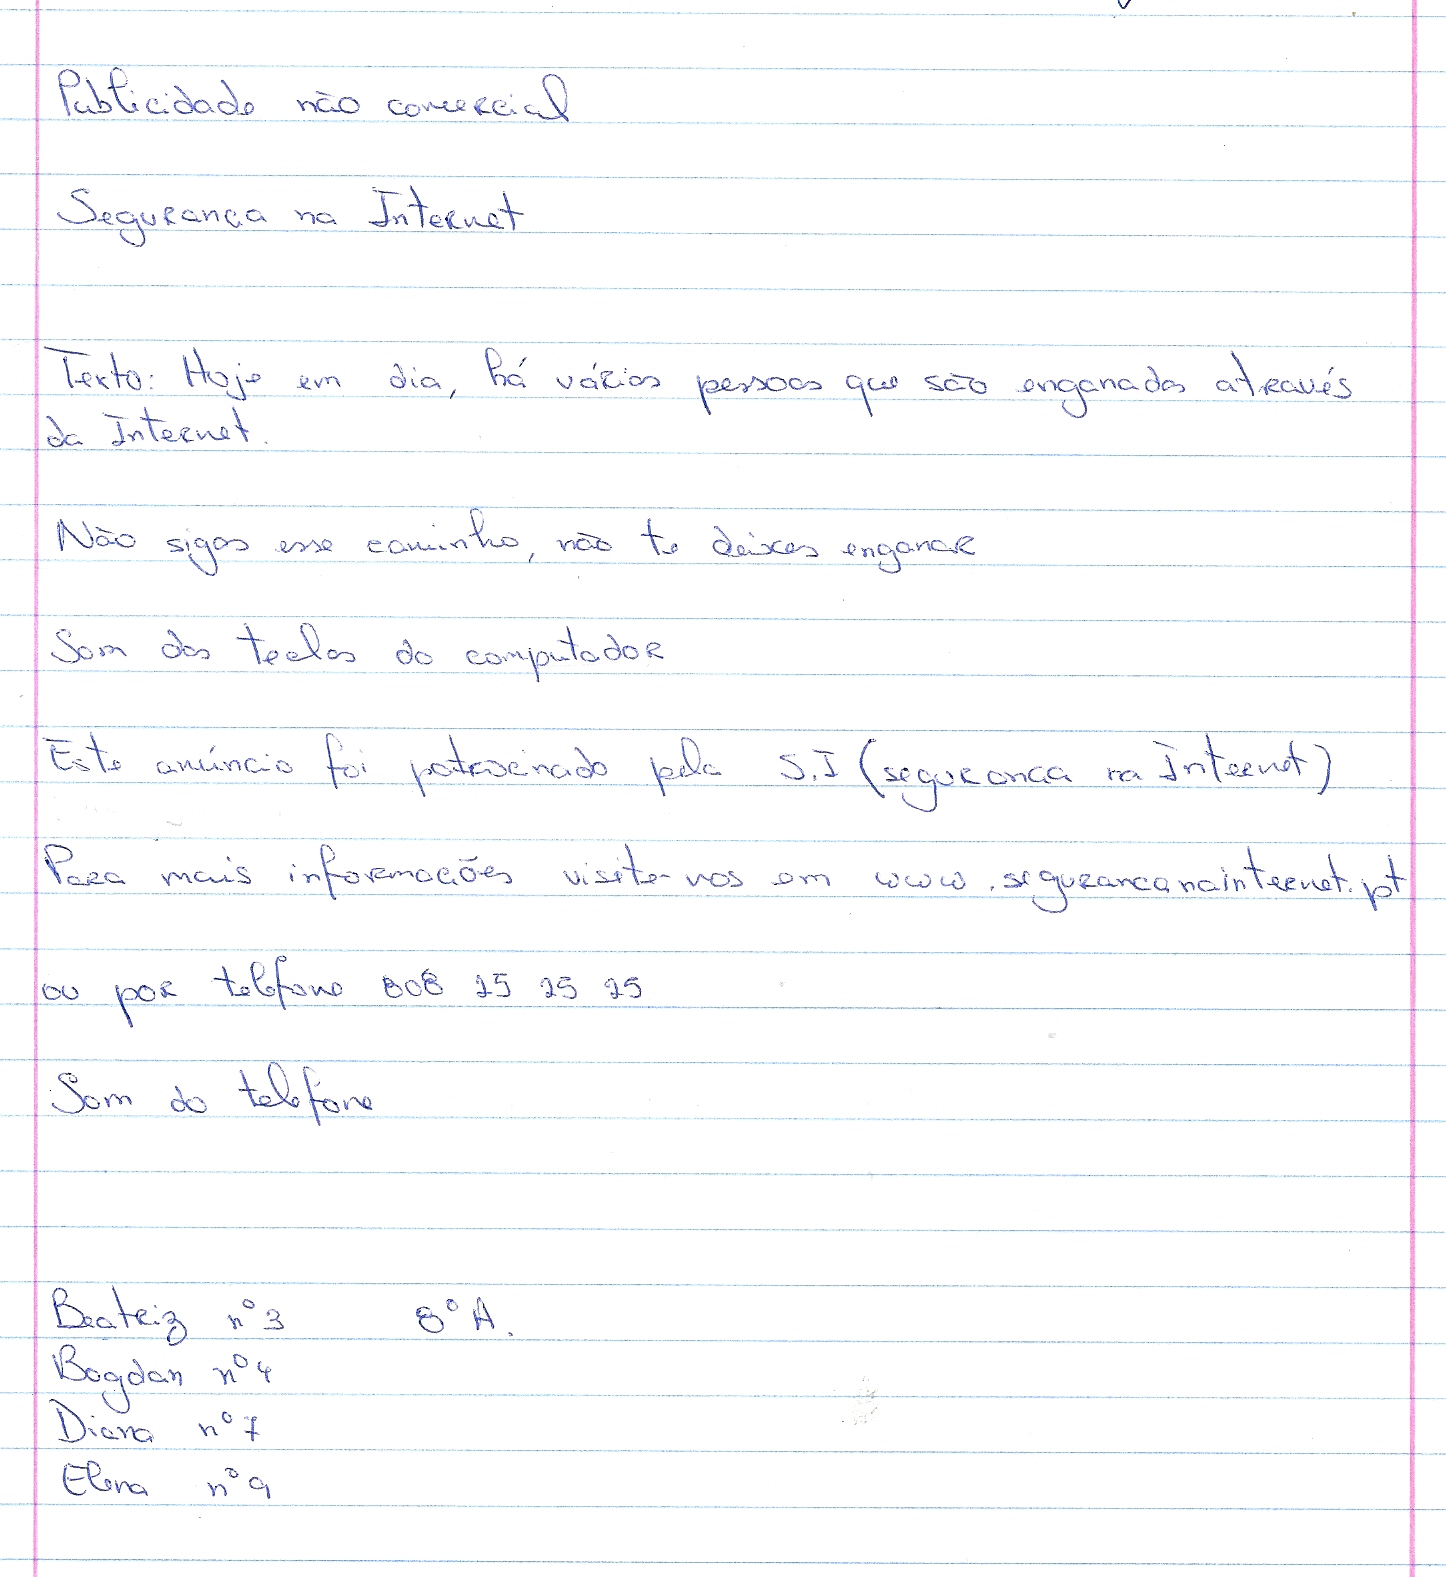 Publicidade não comercial
Segurança na Internet
Texto: Hoje em dia, há várias pessoas que são enganadas através
da Internet.
Não sigas esse caminho, não te deixes enganar
Som das teclas do computador
Este anúncio foi patrocinado pela S.I (segurança na Internet)
Para mais informações visite-nos em www.segurancanainternet.pt
ou por telefone 808 25 25 25
Som do telefone
Beatriz nº3 8º A.
Bogdan nº4
Diana nº7
Elena nº9